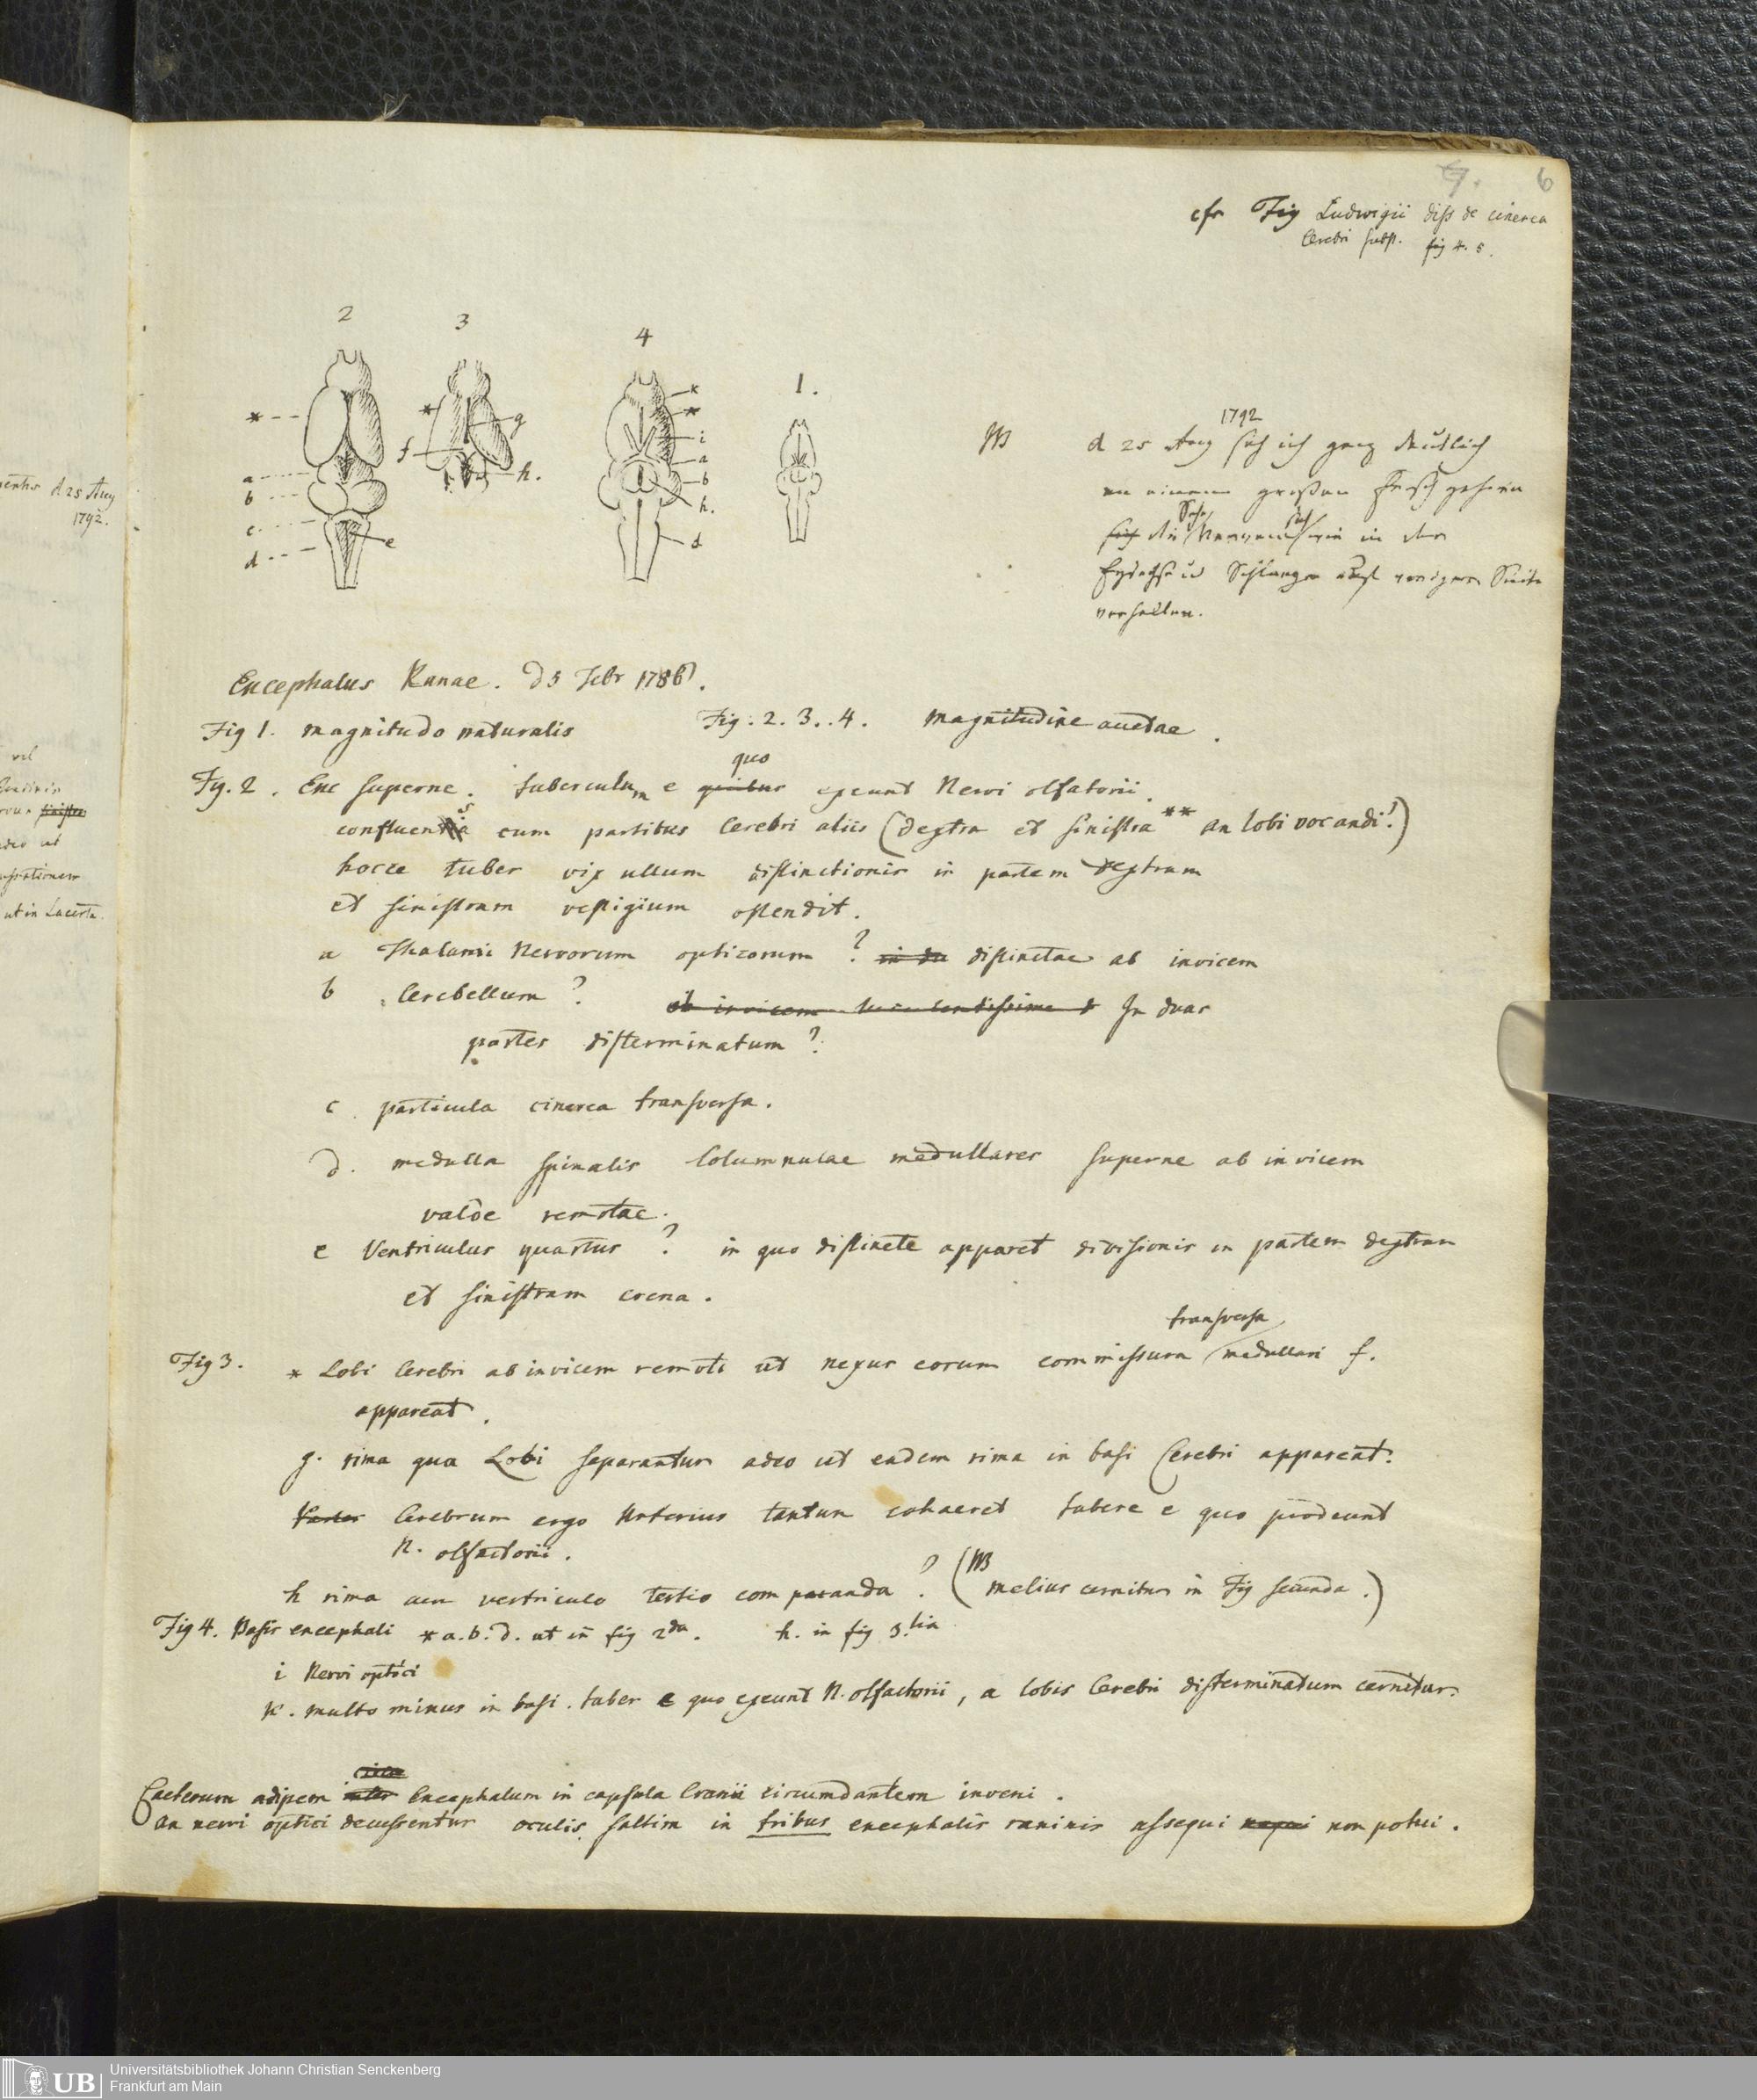 7. 6
cfr Fig Ludwigii diss de cinerea
Cerebri subst. fig 4. 5.
2 3 4 1.
* a b c d e
* f g h.
* * i a b h. d
NB d 25 Aug 1792 sah ich ganz deutlich
an einem großen Froschgehirn
sich die Sehnerven sich wie in der
Eydechse u Schlange voriger Seite
verhalten.
Encephalus Ranae. d 5 Febr 1786.
Fig 1. magnitudo naturalis Fig. 2. 3. 4. magnitudine auctae.
Fig. 2. Enc superne. tuberculum e quibus quo exeunt Nervi olfatorii.
confluens cum partibus Cerebri aliis (dextra et sinistra ** an lobi vocandi?)
hocce tuber vix ullum distinctionis in partem dextram
et sinistram vestigium ostendit.
a Thalami Nervorum opticorum? distinctae ab invicem
b Cerebellum? ab invicem luculentissime d In duas
partes disterminatum?
c particula cinerea transversa.
d. medulla spinalis Columnulae medullares superne ab invicem
valde remotae.
e Ventriculus quartus? in quo distincte apparet divisionis in partem dextram
et sinistram crena.
Fig 3. * Lobi Cerebri ab invicem remoti ut nexus eorum commissura transversa medullari f.
appareat.
g. rima qua Lobi separantur adeo ut eadem rima in basi Cerebri appareat.
Cerebrum ergo Anterius tantum cohaeret tubere e quo prodeunt
N. olfactorii.
h rima cum ventriculo tertio comparanda? (NB melius cernitur in Fig secunda.)
Fig 4. Basis encephali * a. b. d. ut in fig 2da. h. in fig 3.tia
i Nervi optici
K. multo minus in basi. tuber e quo exeunt N. olfactorii, a lobis Cerebri disterminatum cernitur.
Caeterum adipem Encephalum in capsula Cranii circumdantem inveni.
An nervi optici decussentur oculis saltim in tribus encephalis raninis assequi non potui.
d 25 Aug
1792.
vel
ut in Lacerta.
UB Universitätsbibliothek Johann Christian Senckenberg
Frankfurt am Main